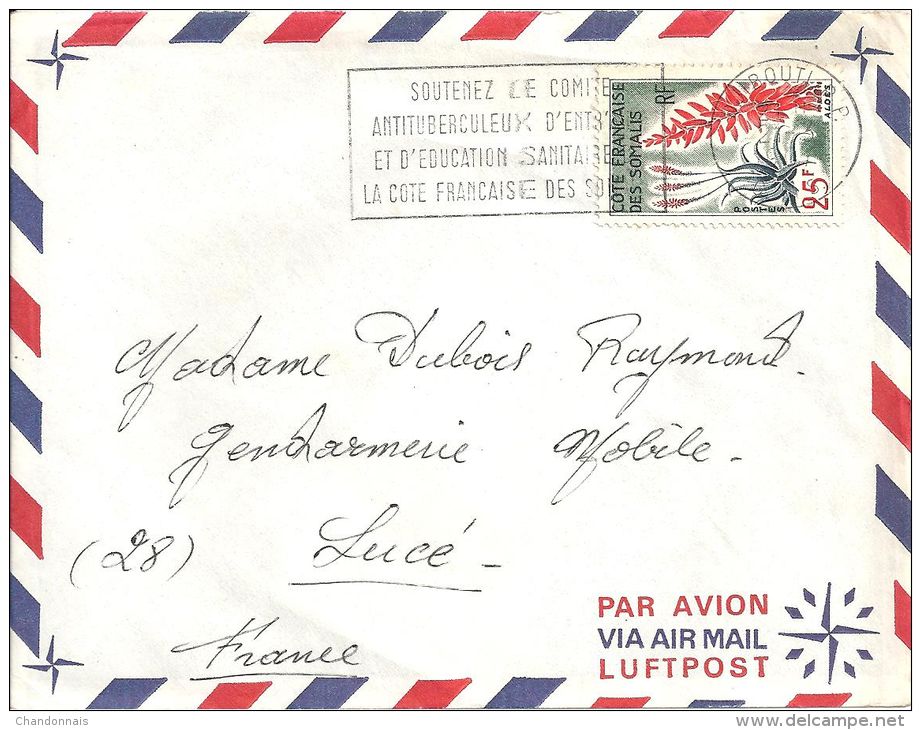 SOUTENEZ LE COMITE
ANTITUBERCULEUX D'ENTR
ET D'EDUCATION SANITAIRE
LA COTE FRANCAISE DES SO
COTE FRANCAISE
DES SOMALIS
RF
ALOES
POSTES
25F
Madame Dubois Raymond.
Gendarmerie Mobile -
(28) Lucé -
France
PAR AVION
VIA AIR MAIL
LUFTPOST
Chandonnais
www.delcampe.net